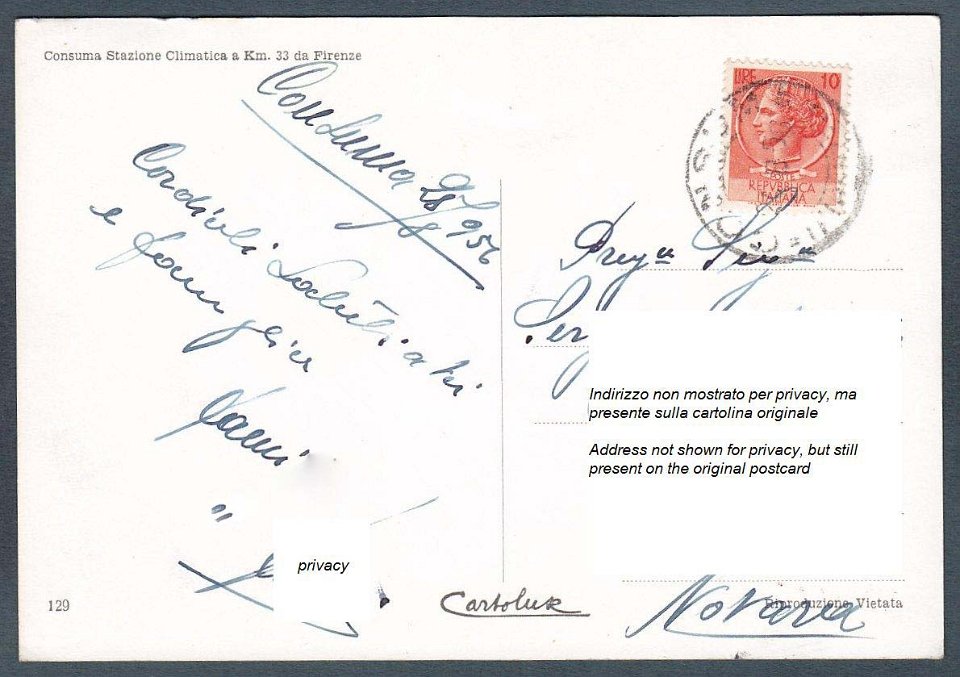 Consuma Stazione Climatica a Km. 33 da Firenze
Consuma
956
Cordiali Saluti a te
e famiglia
"
privacy
129
Cartolux
LIRE 10
POSTE
REPVBBLICA
ITALIANA
Preg
Indirizzo non mostrato per privacy, ma
presente sulla cartolina originale
Address not shown for privacy, but still
present on the original postcard
Novara
Riproduzione Vietata